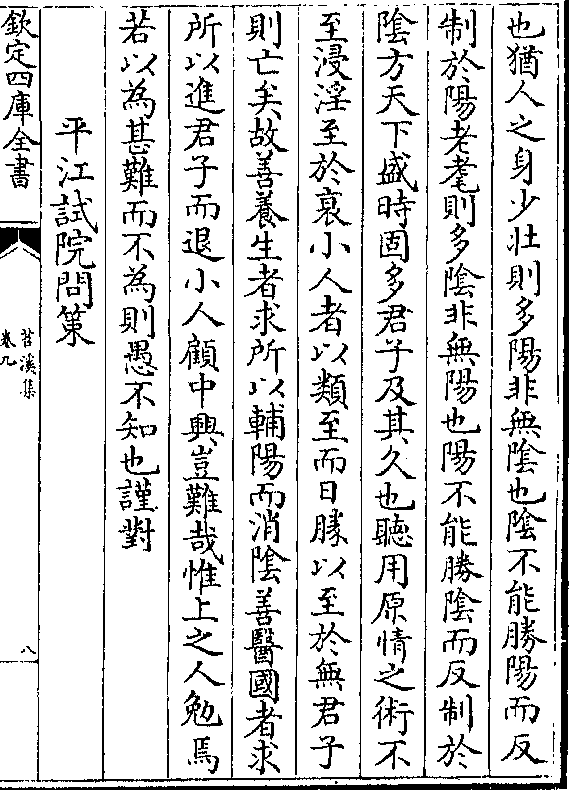 也猶人之身少壯則多陽非無隂也隂不能勝陽而反
制於陽老耄則多隂非無陽也陽不能勝隂而反制於
隂方天下盛時固多君子及其久也聽用原情之術不
至浸淫至於衰小人者以類至而日勝以至於無君子
則亡矣故善養生者求所以輔陽而消隂善醫國者求
所以進君子而退小人顧中興豈難哉惟上之人勉焉
若以為甚難而不為則愚不知也謹對
平江試院問策
欽定四庫全書
苕溪集
卷九
八